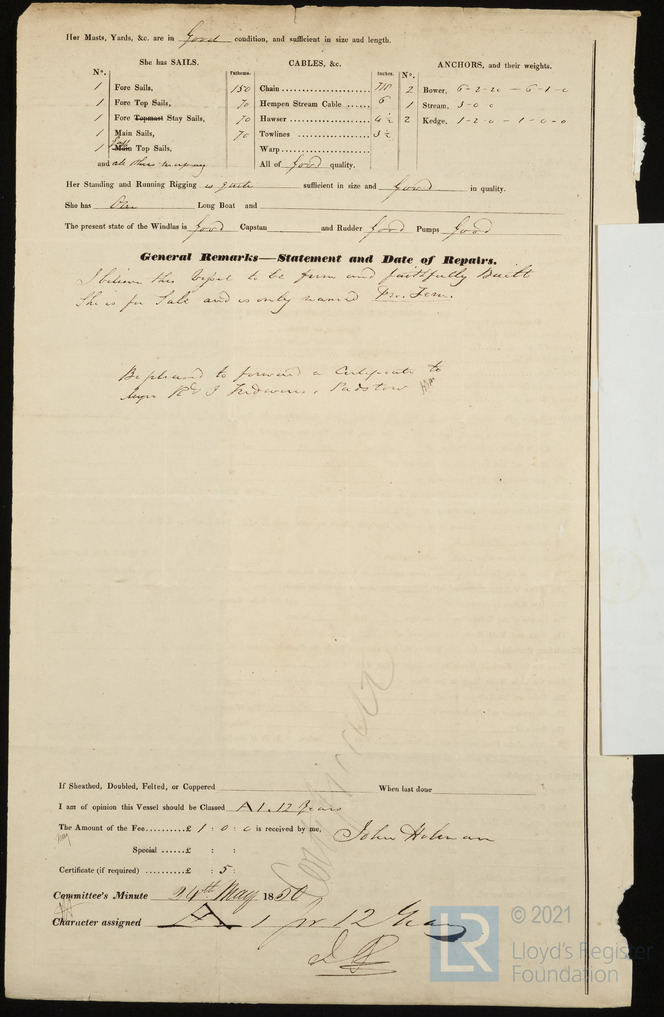 Her Masts, Yards, &c. are in Good condition, and sufficient in size and length.
She has SAILS.
CABLES, &c.
ANCHORS, and their weights.
N°.
Fathoms.
Inches.
N°.
1 Fore Sails, 150 Chain 7/8 2 Bower, 6-2-20 — 6-1-0
1 Fore Top Sails, 70 Hempen Stream Cable 6 1 Stream, 3-0-0
1 Fore Topmast Stay Sails, 70 Hawser 4½ 2 Kedge, 1-2-0 - 1-0-0
1 Main Sails, 70 Towlines 3½
1 Main Top Sails, Warp
and all others necessary All of Good quality.
Her Standing and Running Rigging is quite sufficient in size and Good in quality.
She has One Long Boat and
The present state of the Windlas is Good Capstan and Rudder Good Pumps Good
General Remarks—Statement and Date of Repairs.
I believe this Vessel to be firm and faithfully Built
She is for Sale and is only named Pro. Tem.
Be pleased to forward a Certificate to
Messrs Rd & J Tredwen, Padstow
If Sheathed, Doubled, Felted, or Coppered When last done
I am of opinion this Vessel should be Classed A 1. 12 Years
The Amount of the Fee £ 1 : 0 : 0 is received by me, John Holman
Special £ : :
Certificate (if required) £ : 5 :
Committee's Minute 24th May 1850
Character assigned A 1 for 12 Years
© 2021
LR
Lloyd's Register
Foundation